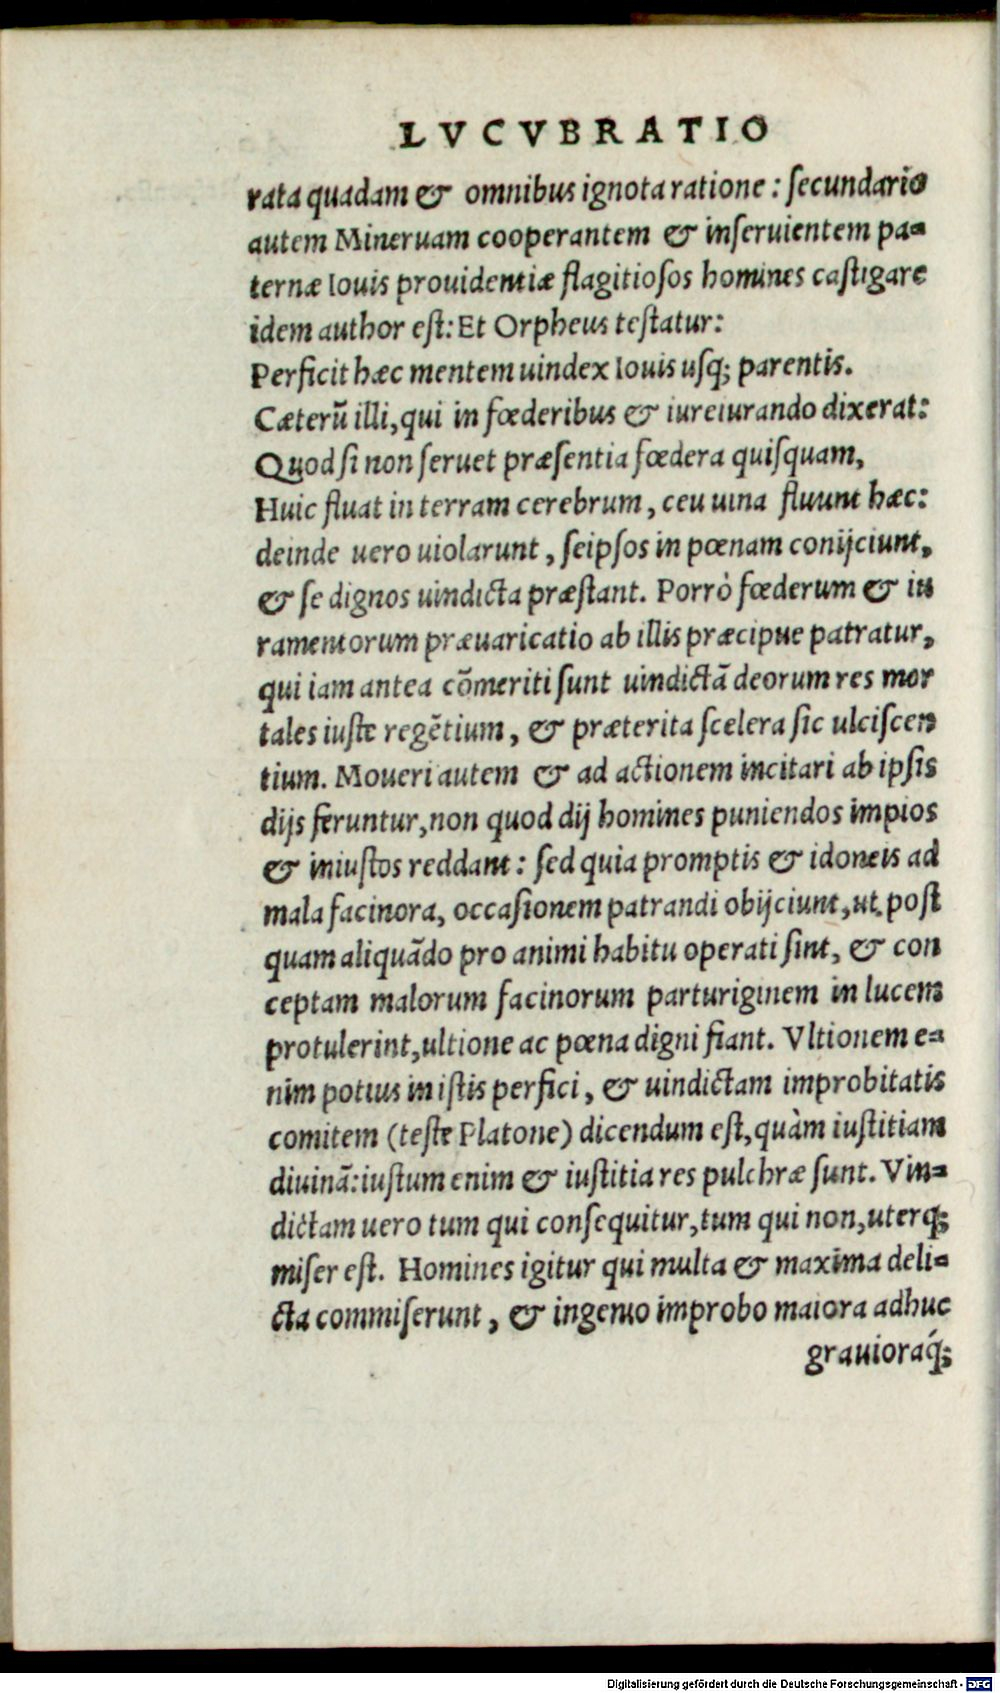 LVCVBRATIO
rata quadam & omnibus ignota ratione : secundario
autem Mineruam cooperantem & inseruientem pa=
ternæ Iouis prouidentiæ flagitiosos homines castigare
idem author est: Et Orpheus testatur:
Perficit hæc mentem uindex Iouis usq; parentis.
Cæterũ illi, qui in fœderibus & iureiurando dixerat:
Quod si non seruet præsentia fœdera quisquam,
Huic fluat in terram cerebrum, ceu uina fluunt hæc:
deinde uero uiolarunt, seipsos in pœnam conijciunt,
& se dignos uindicta præstant. Porrò fœderum & iu
ramentorum præuaricatio ab illis præcipue patratur,
qui iam antea cõmeriti sunt uindictã deorum res mor
tales iuste regẽtium, & præterita scelera sic ulciscen
tium. Moueri autem & ad actionem incitari ab ipsis
dijs feruntur, non quod dij homines puniendos impios
& iniustos reddant: sed quia promptis & idoneis ad
mala facinora, occasionem patrandi obijciunt, ut post
quam aliquãdo pro animi habitu operati sint, & con
ceptam malorum facinorum parturiginem in lucem
protulerint, ultione ac pœna digni fiant. Vltionem e=
nim potius in istis perfici, & uindictam improbitatis
comitem (teste Platone) dicendum est, quàm iustitiam
diuinã: iustum enim & iustitia res pulchræ sunt. Vin=
dictam uero tum qui consequitur, tum qui non, uterq;
miser est. Homines igitur qui multa & maxima deli=
cta commiserunt, & ingenio improbo maiora adhuc
grauioraq́;
Digitalisierung gefördert durch die Deutsche Forschungsgemeinschaft - DFG